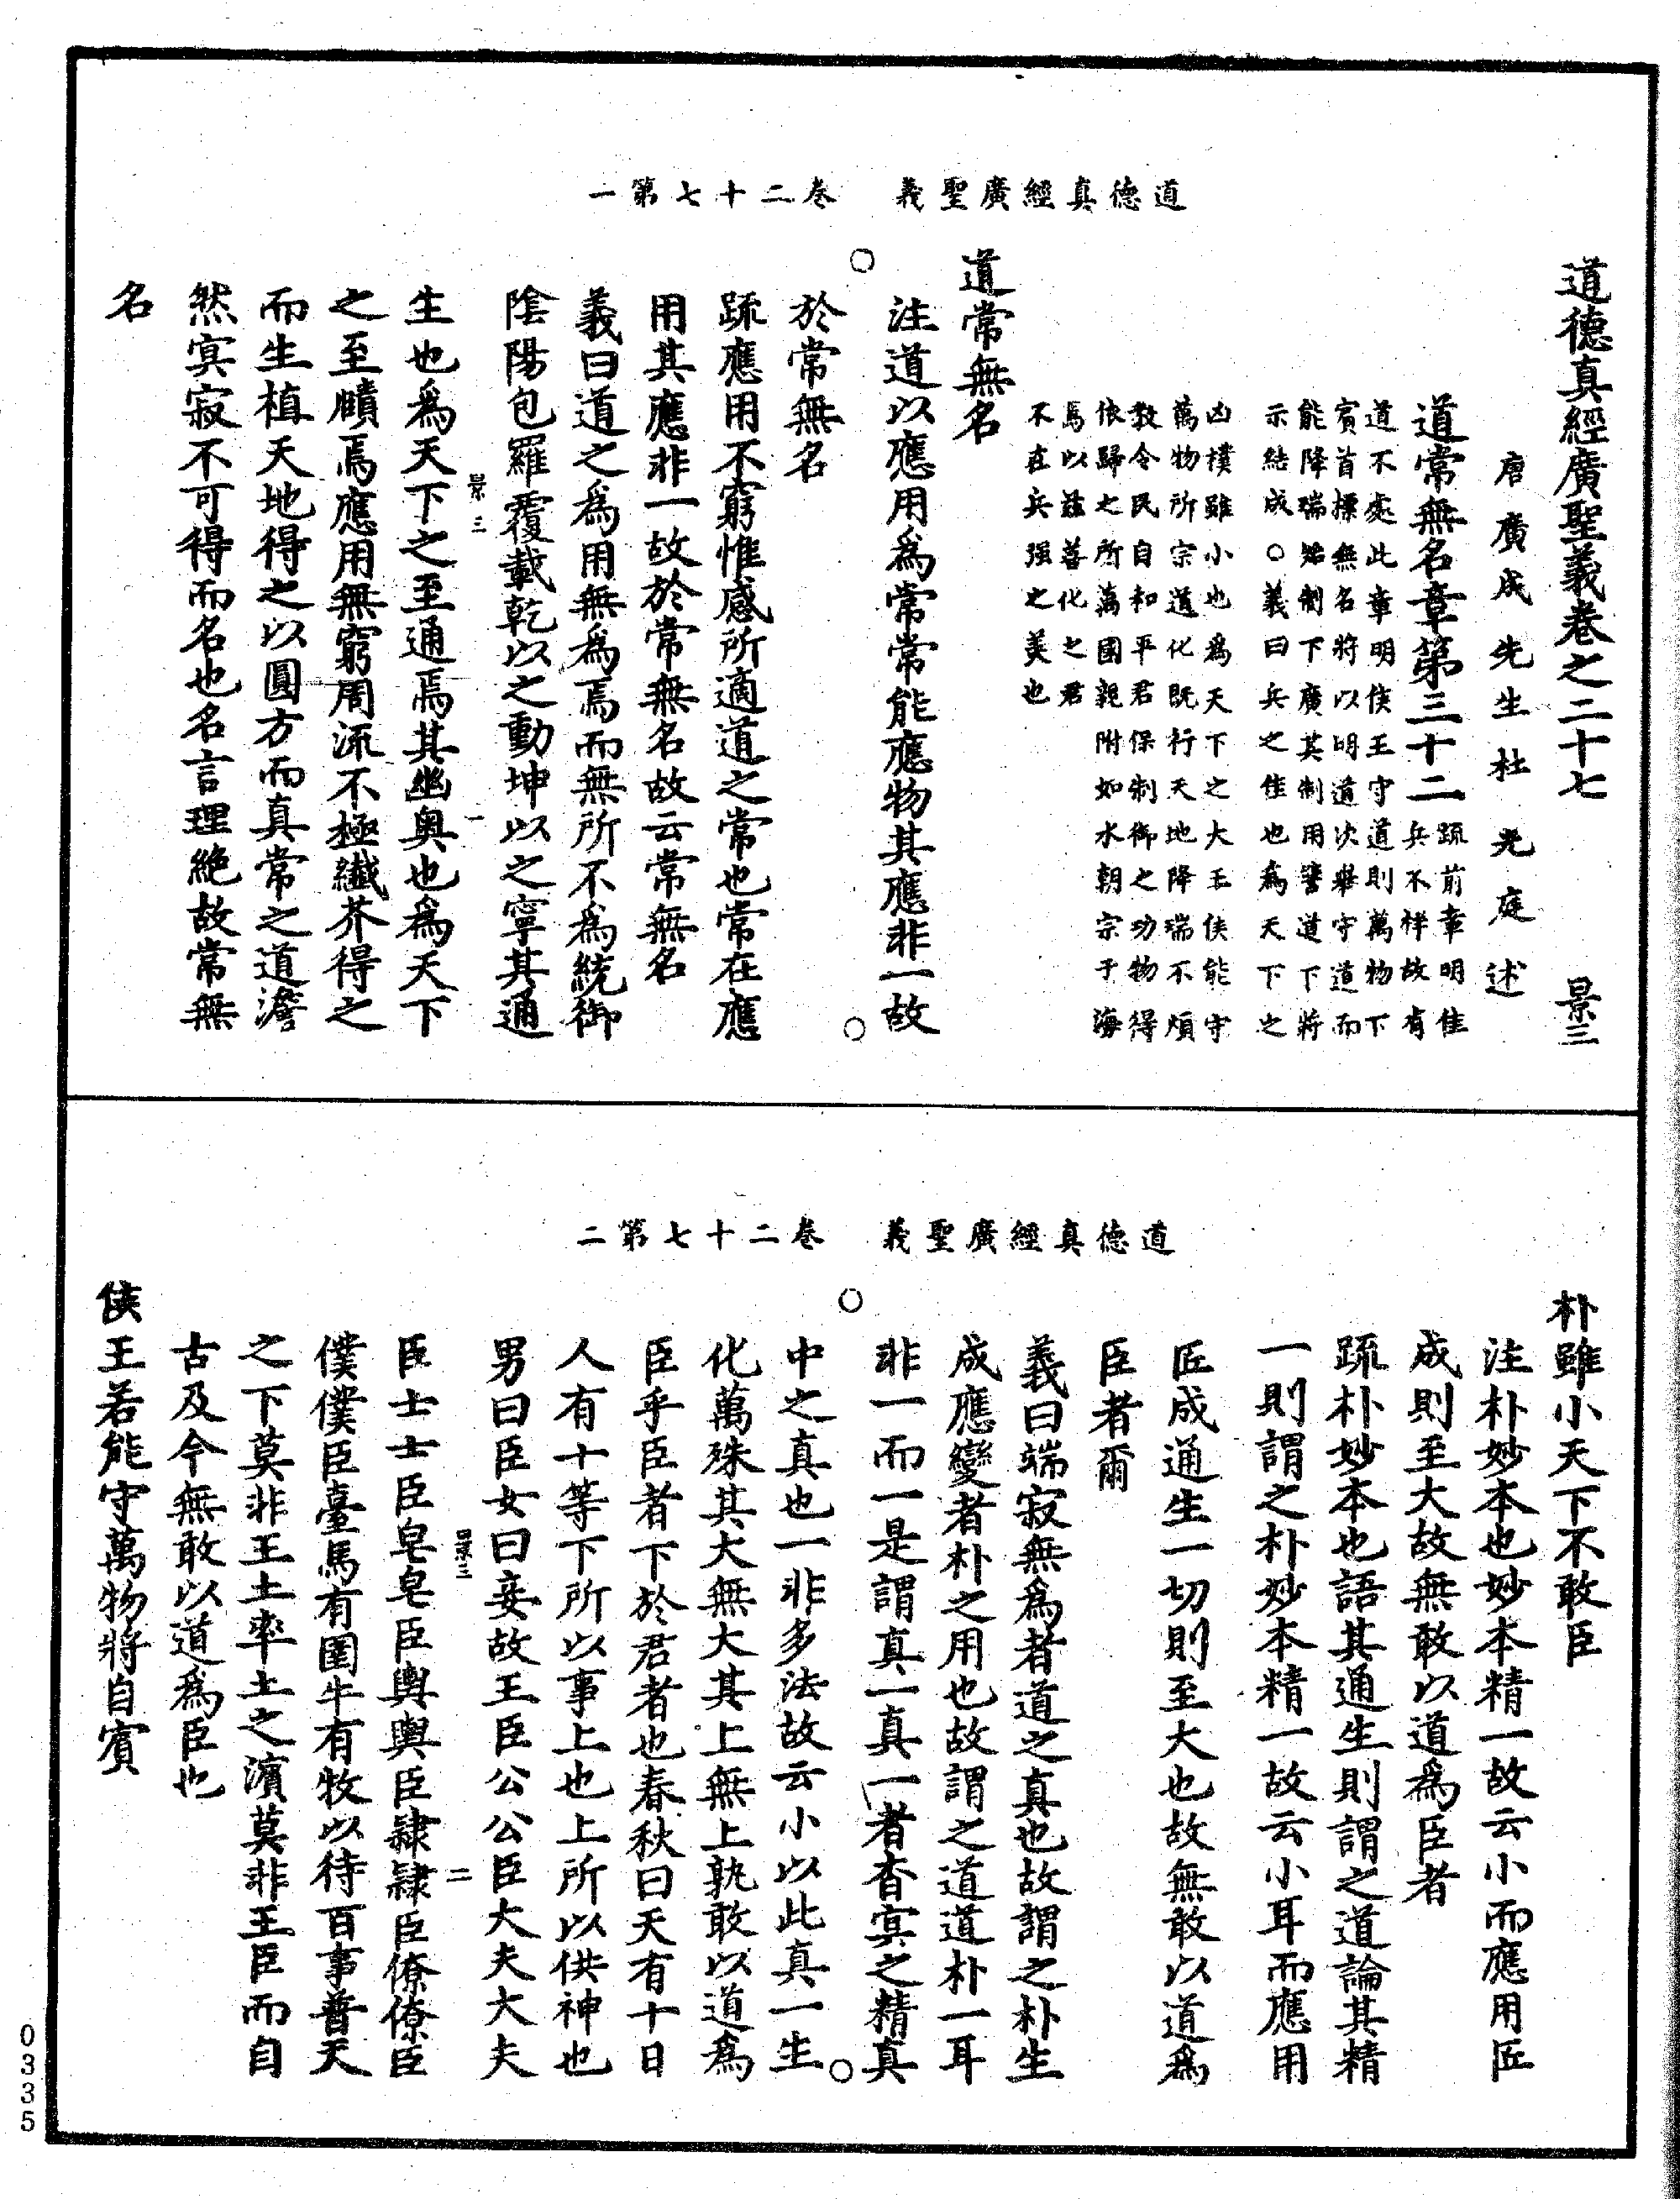 道德真經廣聖義　卷二十七第一
道德真經廣聖義卷之二十七　景三
唐廣成先生杜光庭述
道常無名章第三十二
疏前章明佳
兵不祥故有
道不處此章明侯王守道則萬物下
賓首摽無名將以明道次舉守道而
能降瑞始制下廣其制用譬道下將
示結成○義曰兵之佳也為天下之
凶樸雖小也為天下之大王侯能守
萬物所宗道化既行天地降瑞不煩
教令民自和平君保制御之功物得
依歸之所萬國親附如水朝宗于海
焉以兹善化之君
不在兵强之美也
道常無名
注道以應用爲常常能應物其應非一故
於常無名
疏應用不窮惟感所適道之常也常在應
用其應非一故於常無名故云常無名
義曰道之爲用無爲焉而無所不爲統御
陰陽包羅覆載乾以之動坤以之寧其通
景三
一
生也爲天下之至通焉其幽奥也爲天下
之至賾焉應用無窮周流不極纖芥得之
而生植天地得之以圓方而真常之道澹
然寞寂不可得而名也名言理絶故常無
名
道德真經廣聖義　卷二十七第二
朴雖小天下不敢臣
注朴妙本也妙本精一故云小而應用匠
成則至大故無敢以道爲臣者
疏朴妙本也語其通生則謂之道論其精
一則謂之朴妙本精一故云小耳而應用
匠成通生一切則至大也故無敢以道爲
臣者爾
義曰端寂無爲者道之真也故謂之朴生
成應變者朴之用也故謂之道道朴一耳
非一而一是謂真一真一者杳冥之精真
中之真也一非多法故云小以此真一生
化萬殊其大無大其上無上孰敢以道爲
臣乎臣者下於君者也春秋曰天有十日
人有十等下所以事上也上所以供神也
男曰臣女曰妾故王臣公公臣大夫大夫
景三
二
臣士士臣皂皂臣輿輿臣隸隸臣僚僚臣
僕僕臣臺馬有圉牛有牧以待百事普天
之下莫非王土率土之濱莫非王臣而自
古及今無敢以道爲臣也
侯王若能守萬物將自賓
0335